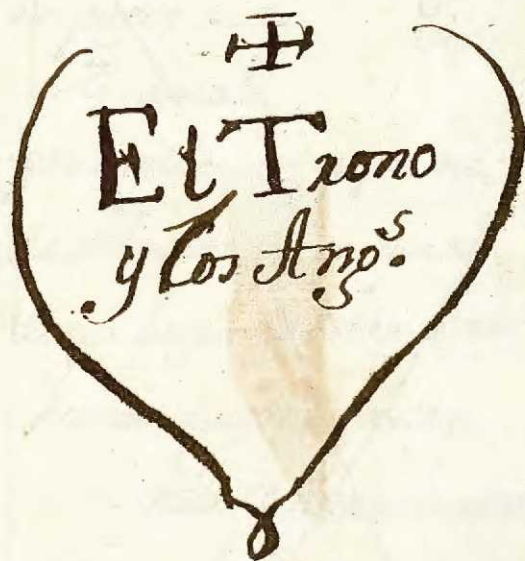 ✠
El Trono
y los Ang.s